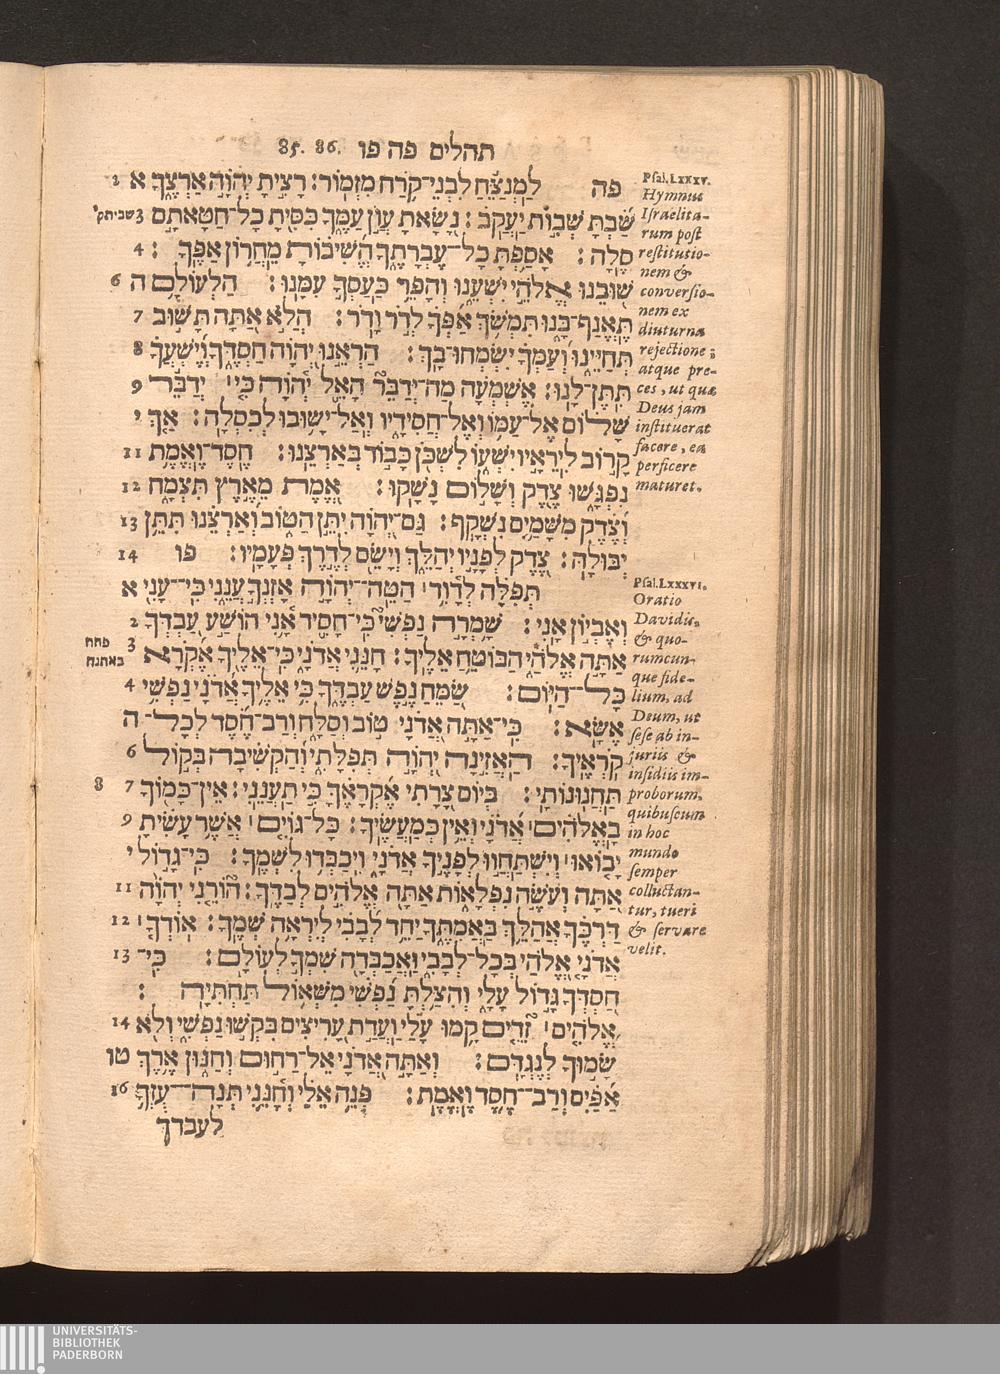 תהלים פה פו 85. 86.
פה לַמְנַצֵּחַ לִבְנֵי־קֹרַח מִזְמוֹר: רָצִיתָ יְהוָֹה אַרְצֶךָ א 2
שַׁבְתָּ שְׁבוּת יַעֲקֹב: נָשָׂאתָ עֲוֹן עַמֶּךָ כִּסִּיתָ כָל־חַטָּאתָם 3 שביתק'
סֶלָה: אָסַפְתָּ כָל־עֶבְרָתֶךָ הֱשִׁיבוֹתָ מֵחֲרוֹן אַפֶּךָ: 4
שׁוּבֵנוּ אֱלֹהֵי יִשְׁעֵנוּ וְהָפֵר כַּעַסְךָ עִמָּנוּ: הַלְעוֹלָם ה 6
תֶּאֱנַף־בָּנוּ תִּמְשֹׁךְ אַפְּךָ לְדֹר וָדֹר: הֲלֹא אַתָּה תָּשׁוּב 7
תְּחַיֵּינוּ וְעַמְּךָ יִשְׂמְחוּ־בָךְ: הַרְאֵנוּ יְהוָֹה חַסְדֶּךָ וְיֶשְׁעֲךָ 8
תִּתֶּן־לָנוּ: אֶשְׁמְעָה מַה־יְדַבֵּר הָאֵל יְהוָֹה כִּי יְדַבֵּר 9
שָׁלוֹם אֶל־עַמּוֹ וְאֶל־חֲסִידָיו וְאַל־יָשׁוּבוּ לְכִסְלָה: אַךְ י
קָרוֹב לִירֵאָיו יִשְׁעוֹ לִשְׁכֹּן כָּבוֹד בְּאַרְצֵנוּ: חֶסֶד־וֶאֱמֶת 11
נִפְגָּשׁוּ צֶדֶק וְשָׁלוֹם נָשָׁקוּ: אֱמֶת מֵאֶרֶץ תִּצְמָח 12
וְצֶדֶק מִשָּׁמַיִם נִשְׁקָף: גַּם־יְהוָֹה יִתֵּן הַטּוֹב וְאַרְצֵנוּ תִּתֵּן 13
יְבוּלָהּ: צֶדֶק לְפָנָיו יְהַלֵּךְ וְיָשֵׂם לְדֶרֶךְ פְּעָמָיו: פו 14
תְּפִלָּה לְדָוִד הַטֵּה־יְהוָֹה אָזְנְךָ עֲנֵנִי כִּי־עָנִי א
וְאֶבְיוֹן אָנִי: שָׁמְרָה נַפְשִׁי כִּי־חָסִיד אָנִי הוֹשַׁע עַבְדְּךָ 2
אַתָּה אֱלֹהַי הַבּוֹטֵחַ אֵלֶיךָ: חָנֵּנִי אֲדֹנָי כִּי־אֵלֶיךָ אֶקְרָא 3 פתח באתנח
כָּל־הַיּוֹם: שַׂמֵּחַ נֶפֶשׁ עַבְדֶּךָ כִּי אֵלֶיךָ אֲדֹנָי נַפְשִׁי 4
אֶשָּׂא: כִּי־אַתָּה אֲדֹנָי טוֹב וְסַלָּח וְרַב־חֶסֶד לְכָל־ ה
קֹרְאֶיךָ: הַאֲזִינָה יְהוָֹה תְּפִלָּתִי וְהַקְשִׁיבָה בְּקוֹל 6
תַּחֲנוּנוֹתָי: בְּיוֹם צָרָתִי אֶקְרָאֶךָּ כִּי תַעֲנֵנִי: אֵין־כָּמוֹךָ 7 8
בָאֱלֹהִים אֲדֹנָי וְאֵין כְּמַעֲשֶׂיךָ: כָּל־גּוֹיִם אֲשֶׁר עָשִׂיתָ 9
יָבוֹאוּ וְיִשְׁתַּחֲווּ לְפָנֶיךָ אֲדֹנָי וִיכַבְּדוּ לִשְׁמֶךָ: כִּי־גָדוֹל י
אַתָּה וְעֹשֵׂה נִפְלָאוֹת אַתָּה אֱלֹהִים לְבַדֶּךָ: הוֹרֵנִי יְהוָֹה 11
דַּרְכֶּךָ אֲהַלֵּךְ בַּאֲמִתֶּךָ יַחֵד לְבָבִי לְיִרְאָה שְׁמֶךָ: אוֹדְךָ 12
אֲדֹנָי אֱלֹהַי בְּכָל־לְבָבִי וַאֲכַבְּדָה שִׁמְךָ לְעוֹלָם: כִּי־ 13
חַסְדְּךָ גָּדוֹל עָלָי וְהִצַּלְתָּ נַפְשִׁי מִשְּׁאוֹל תַּחְתִּיָּה:
אֱלֹהִים זֵדִים קָמוּ עָלַי וַעֲדַת עָרִיצִים בִּקְשׁוּ נַפְשִׁי וְלֹא 14
שָׂמוּךָ לְנֶגְדָּם: וְאַתָּה אֲדֹנָי אֵל־רַחוּם וְחַנּוּן אֶרֶךְ טו
אַפַּיִם וְרַב־חֶסֶד וֶאֱמֶת: פְּנֵה אֵלַי וְחָנֵּנִי תְּנָה־עֻזְּךָ 16
לעבדך
Psal. LXXXV.
Hymnus
Israelita-
rum post
restitutio-
nem &
conversio-
nem ex
diuturna
rejectione;
atque pre-
ces, ut quæ
Deus jam
instituerat
facere, ea
perficere
maturet.
Psal. LXXXVI.
Oratio
Davidis,
& quo-
rumcun-
que fide-
lium, ad
Deum, ut
sese ab in-
juriis &
insidiis im-
proborum,
quibuscum
in hoc
mundo
semper
colluctan-
tur, tueri
& servare
velit.
UNIVERSITÄTS-
BIBLIOTHEK
PADERBORN